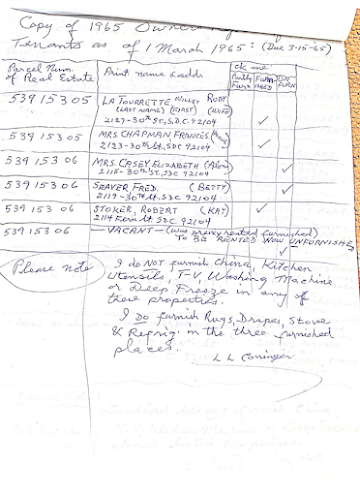 Copy of 1965 Owner
Tenants as of 1 March 1965: (Due 3-15-65)
Parcel Num of Real Estate
Print name & adds
ck one
Partly Furn
FURNISHED
UN FURN
539 153 05 LA TOURRETTE WILLET RUDY
(LAST NAME) (FIRST) (WIFE)
2127-30th St, S.D.C. 92104 ✓
539 153 05 MRS. CHAPMAN FRANCES
2123-30th St. SDC 92104 ✓
539 153 06 MRS. CASEY, ELIZABETH (Alone)
2115-30th ST. SDC 92104 ✓
539 153 06 SEAVER FRED. (BETTY)
2119-30th St. SDC 92104 ✓
539 153 06 STOKER, ROBERT (KAT) ✓
2114 Fern St. SDC. 92104
539 153 06 —VACANT—(was rented furnished)
TO BE RENTED NOW UNFURNISHED ✓
Please note I do NOT furnish China, Kitchen
Utensils, T-V, Washing Machine
or Deep Freeze in any of
these properties.
I DO furnish Rugs, Drapes, Stove
& Refrig. in the three furnished
places.
L L